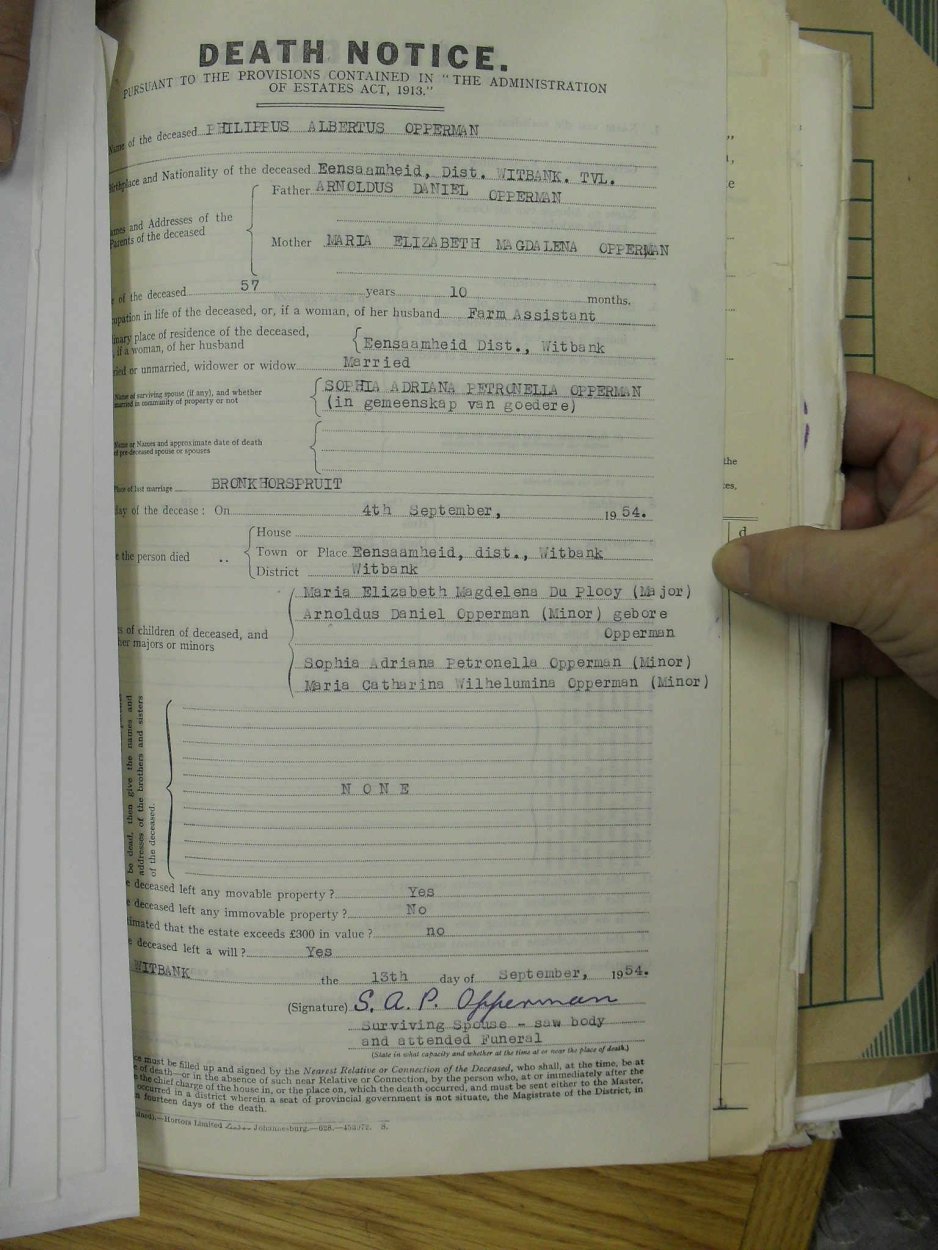 DEATH NOTICE.
PURSUANT TO THE PROVISIONS CONTAINED IN "THE ADMINISTRATION
OF ESTATES ACT, 1913."
Name of the deceased PHILIPPUS ALBERTUS OPPERMAN
Birthplace and Nationality of the deceased Eensaamheid, Dist. WITBANK. TVL.
Father ARNOLDUS DANIEL OPPERMAN
ames and Addresses of the
Parents of the deceased
Mother MARIA ELIZABETH MAGDALENA OPPERMAN
e of the deceased 57 years 10 months.
upation in life of the deceased, or, if a woman, of her husband Farm Assistant
inary place of residence of the deceased,
if a woman, of her husband Eensaamheid Dist., Witbank
ried or unmarried, widower or widow Married
Name of surviving spouse (if any), and whether SOPHIA ADRIANA PETRONELLA OPPERMAN
married in community of property or not (in gemeenskap van goedere)
Name or Names and approximate date of death
of pre-deceased spouse or spouses
Place of last marriage BRONKHORSPRUIT
day of the decease: On 4th September, 1954.
House
e the person died .. Town or Place Eensaamheid, dist., Witbank
District Witbank
Maria Elizabeth Magdelena Du Plooy (Major)
Arnoldus Daniel Opperman (Minor) gebore
s of children of deceased, and Opperman
her majors or minors
Sophia Adriana Petronella Opperman (Minor)
Maria Catharina Wilhelumina Opperman (Minor)
be dead, then give the names and
addresses of the brothers and sisters
of the deceased.
NONE
e deceased left any movable property? Yes
e deceased left any immovable property? No
timated that the estate exceeds £300 in value? no
e deceased left a will? Yes
WITBANK the 13th day of September, 1954.
(Signature) S. A. P. Opperman
Surviving Spouse - saw body
and attended Funeral
(State in what capacity and whether at the time at or near the place of death.)
ce must be filled up and signed by the Nearest Relative or Connection of the Deceased, who shall, at the time, be at
e of death—or in the absence of such near Relative or Connection, by the person who, at or immediately after the
the chief charge of the house in, or the place on, which the death occurred, and must be sent either to the Master,
occurred in a district wherein a seat of provincial government is not situate, the Magistrate of the District, in
n fourteen days of the death.
Hortors Limited Johannesburg.—628.—453072. S.